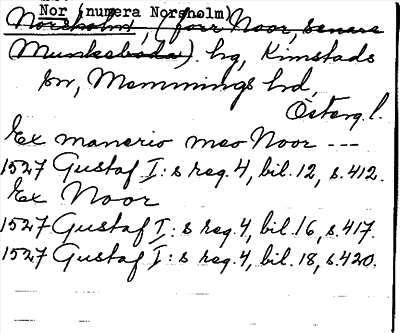 Nor (numera Norsholm)
Norsholm, (förr Noor, senare
Munkeboda). hg, Kimstads
sn, Memmings hd,
Österg.l.
Ex manerio meo Noor ---
1527 Gustaf I:s reg. 4, bil. 12, s. 412.
Ex Noor
1527 Gustaf I:s reg. 4, bil. 16, s. 417.
1527 Gustaf I:s reg. 4, bil. 18, s. 420.